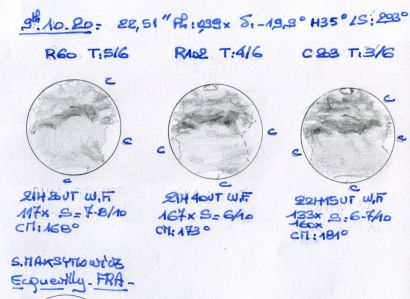 9th.10.20 = 22,51" Ph:0,99x δ:-19,3° H35° LS:293°
R60 T:5/6 R102 T:4/6 C203 T:3/6
C
C
C
C
C
C
21H20UT W.F 21H40UT W.F 22H15UT W.F
117x S=7-8/10 167x S=6/10 133x 160x S=6-7/10
CM:168° CM:173° CM:181°
S.MAKSYMOWICZ
Ecquevilly-FRA-